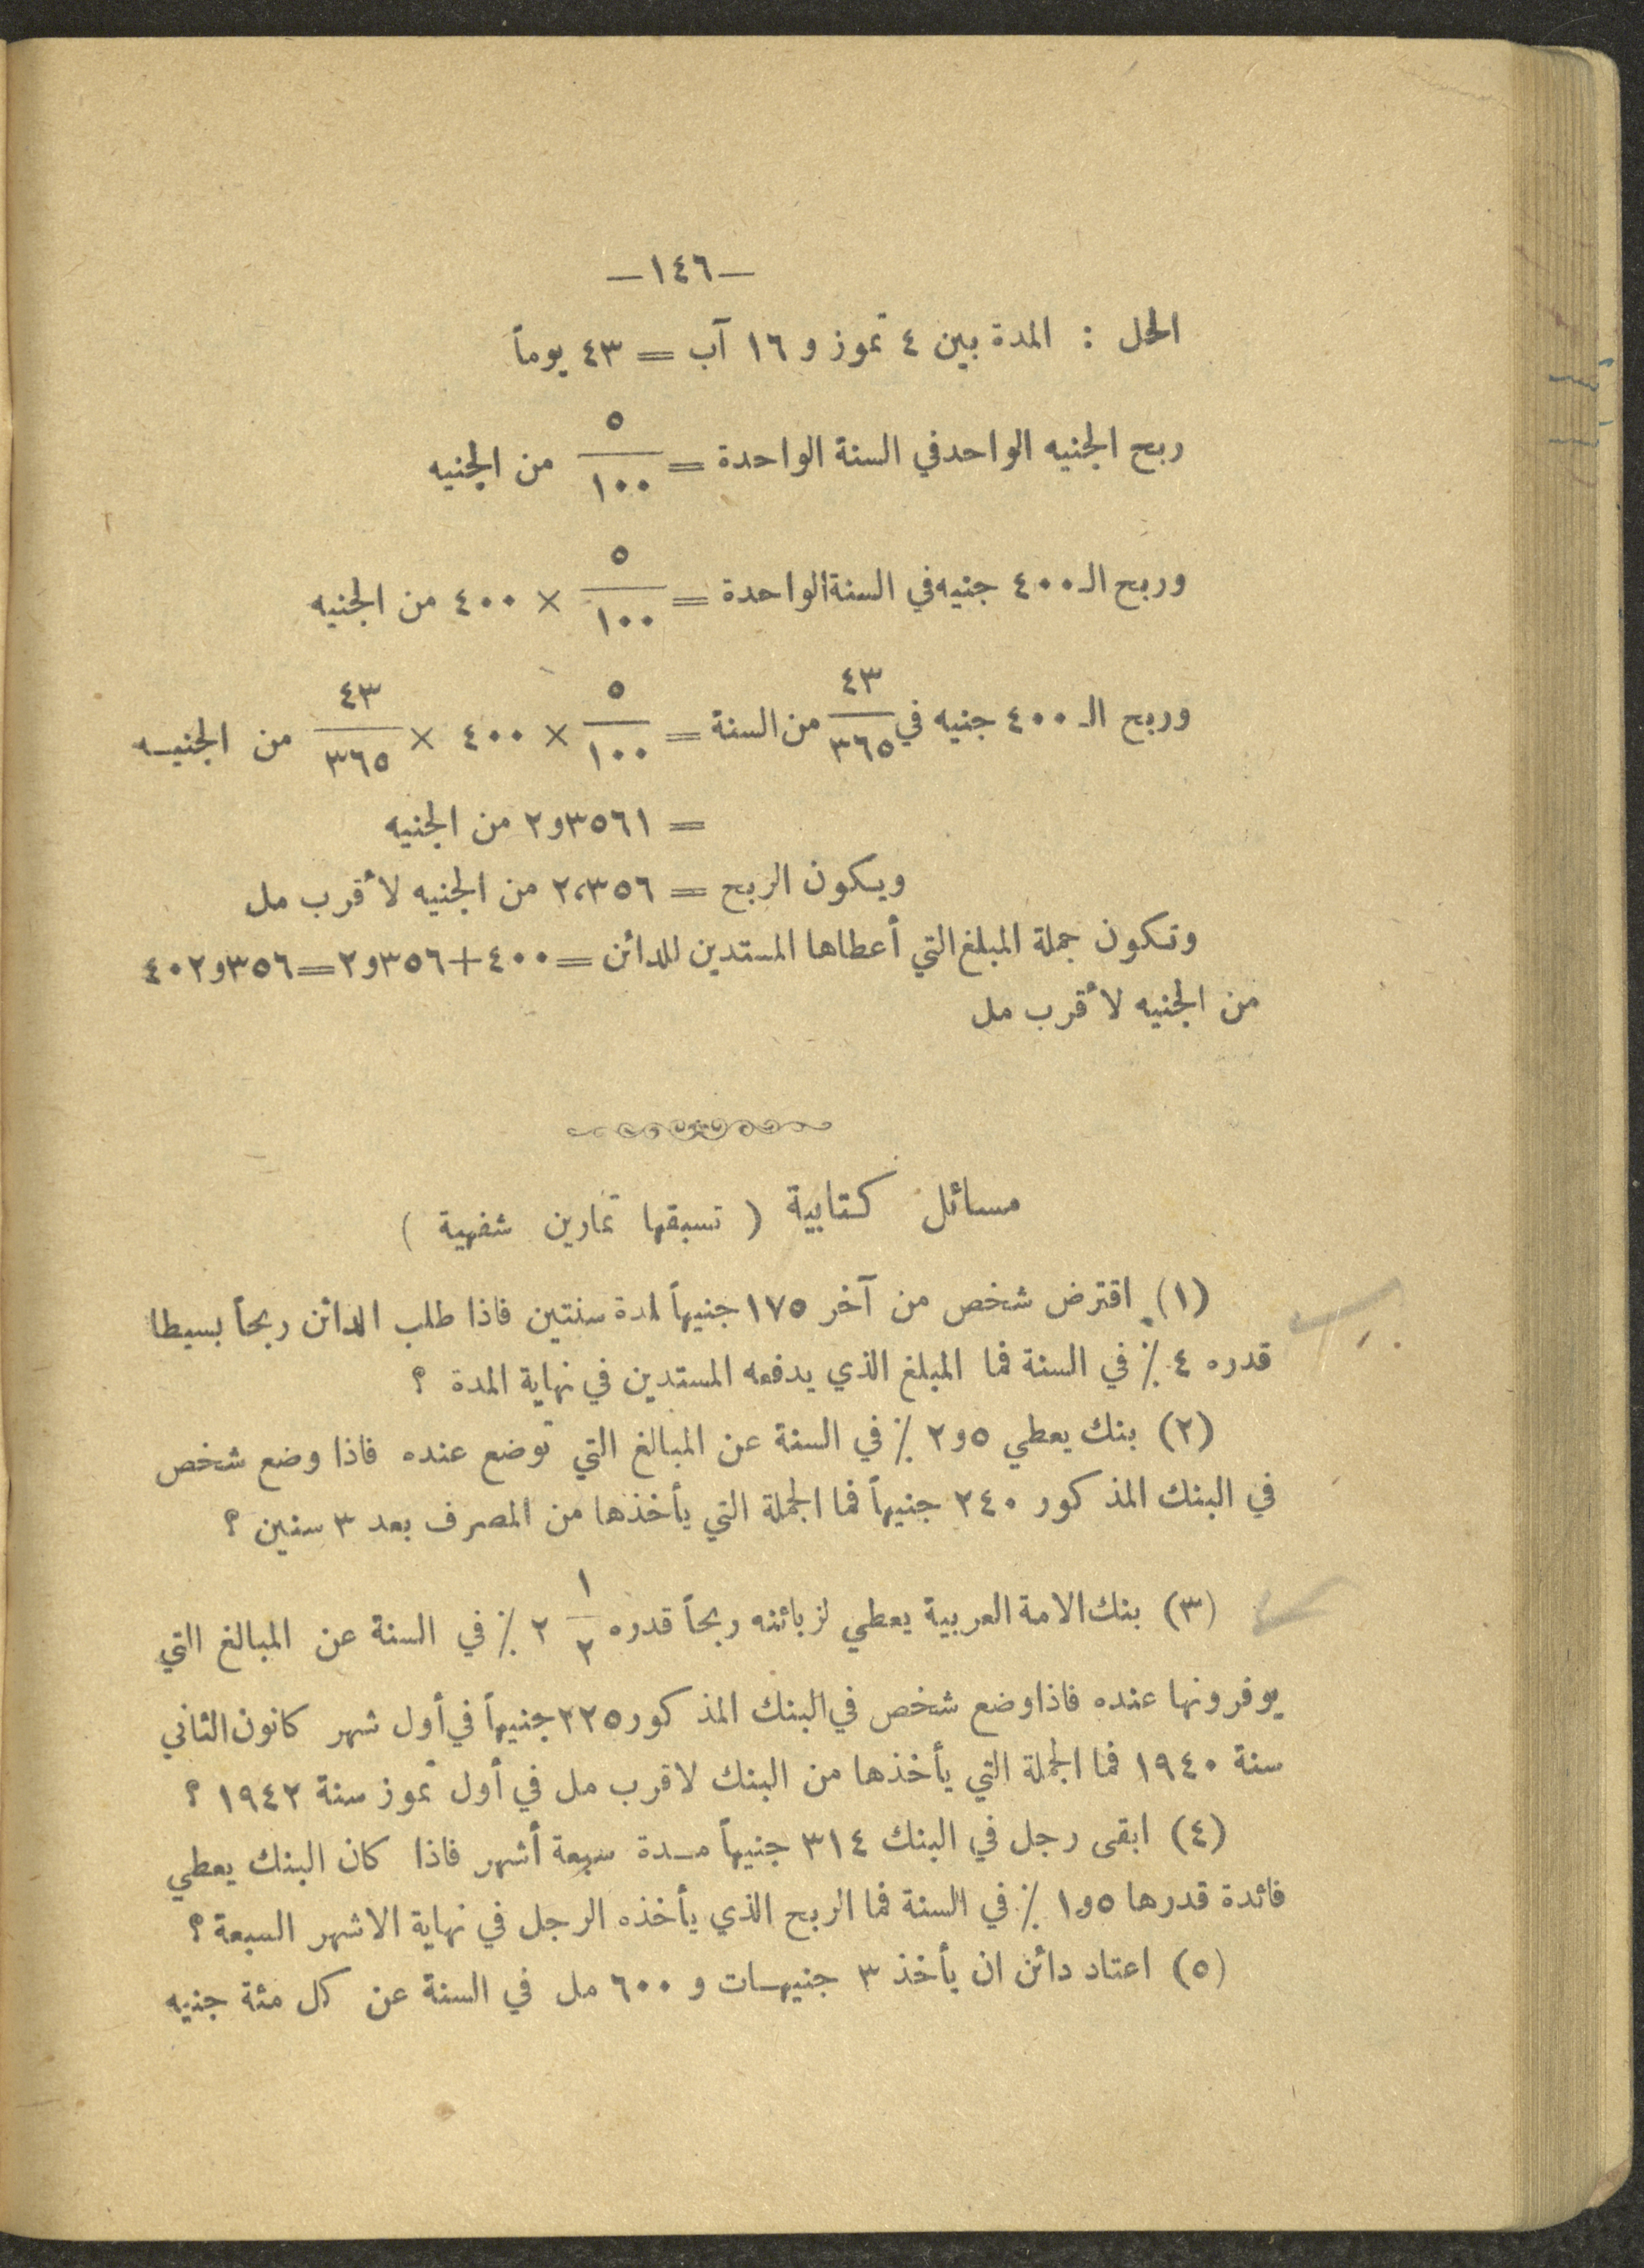 —١٤٦—
الحل : المدة بين ٤ تموز و ١٦ آب = ٤٣ يوماً
ربح الجنيه الواحد في السنة الواحدة = ٥/١٠٠ من الجنيه
وربح الـ ٤٠٠ جنيه في السنة الواحدة = ٥/١٠٠ × ٤٠٠ من الجنيه
وربح الـ ٤٠٠ جنيه في ٤٣/٣٦٥ من السنة = ٥/١٠٠ × ٤٠٠ × ٤٣/٣٦٥ من الجنيه
= ٢و٣٥٦١ من الجنيه
ويكون الربح = ٢،٣٥٦ من الجنيه لأقرب مل
وتكون جملة المبلغ التي أعطاها المستدين للدائن = ٤٠٠+٢و٣٥٦=٤٠٢و٣٥٦
من الجنيه لأقرب مل
مسائل كتابية ( تسبقها تمارين شفهية )
(١) اقترض شخص من آخر ١٧٥ جنيهاً لمدة سنتين فاذا طلب الدائن ربحاً بسيطا
قدره ٤ ٪ في السنة فما المبلغ الذي يدفعه المستدين في نهاية المدة ؟
(٢) بنك يعطي ٢و٥ ٪ في السنة عن المبالغ التي توضع عنده فاذا وضع شخص
في البنك المذكور ٢٤٠ جنيهاً فما الجملة التي يأخذها من المصرف بعد ٣ سنين ؟
(٣) بنك الامة العربية يعطي لزبائنه ربحاً قدره ١/٢ ٢ ٪ في السنة عن المبالغ التي
يوفرونها عنده فاذا وضع شخص في البنك المذكور ٢٢٥ جنيهاً في أول شهر كانون الثاني
سنة ١٩٤٠ فما الجملة التي يأخذها من البنك لاقرب مل في أول تموز سنة ١٩٤٢ ؟
(٤) ابقى رجل في البنك ٣١٤ جنيهاً مدة سبعة أشهر فاذا كان البنك يعطي
فائدة قدرها ١و٥ ٪ في السنة فما الربح الذي يأخذه الرجل في نهاية الاشهر السبعة ؟
(٥) اعتاد دائن ان يأخذ ٣ جنيهات و ٦٠٠ مل في السنة عن كل مئة جنيه